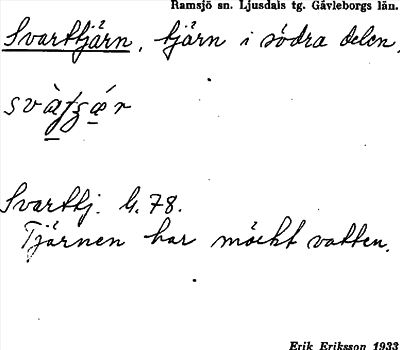 Ramsjö sn. Ljusdals tg. Gävleborgs län.
Svarttjärn, tjärn i södra delen,
Svarttj. G. 78.
Tjärnen har mörkt vatten.
Erik Eriksson 1933